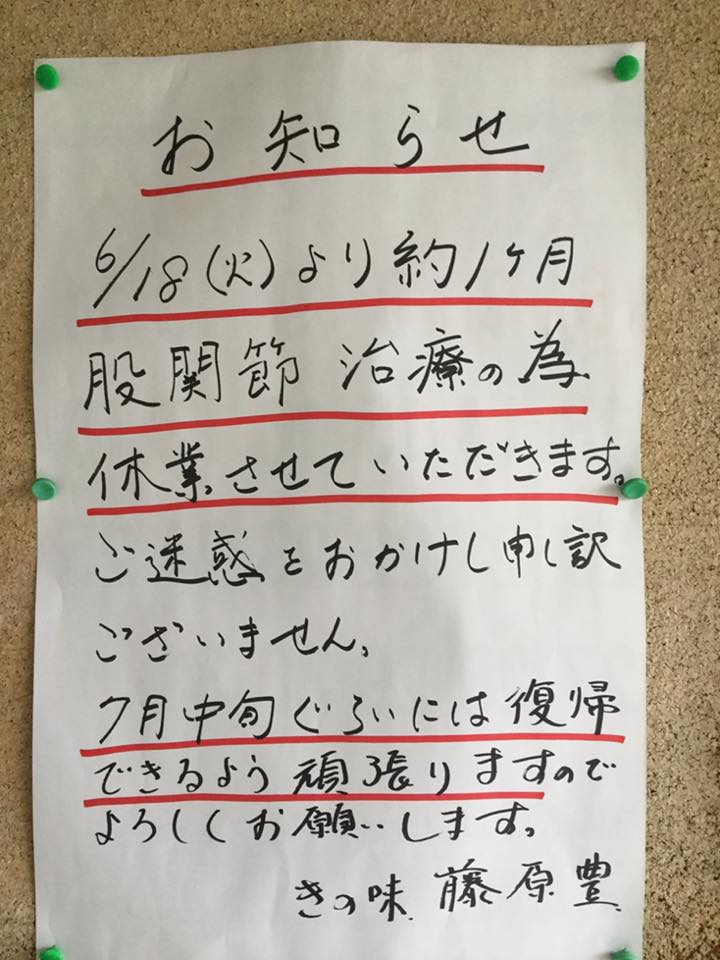 お知らせ
6/18(火)より約1ヶ月
股関節 治療の為
休業させていただきます。
ご迷惑をおかけし申し訳
ございません。
7月中旬ぐらいには復帰
できるよう頑張りますので
よろしくお願いします。
きの味 藤原豊